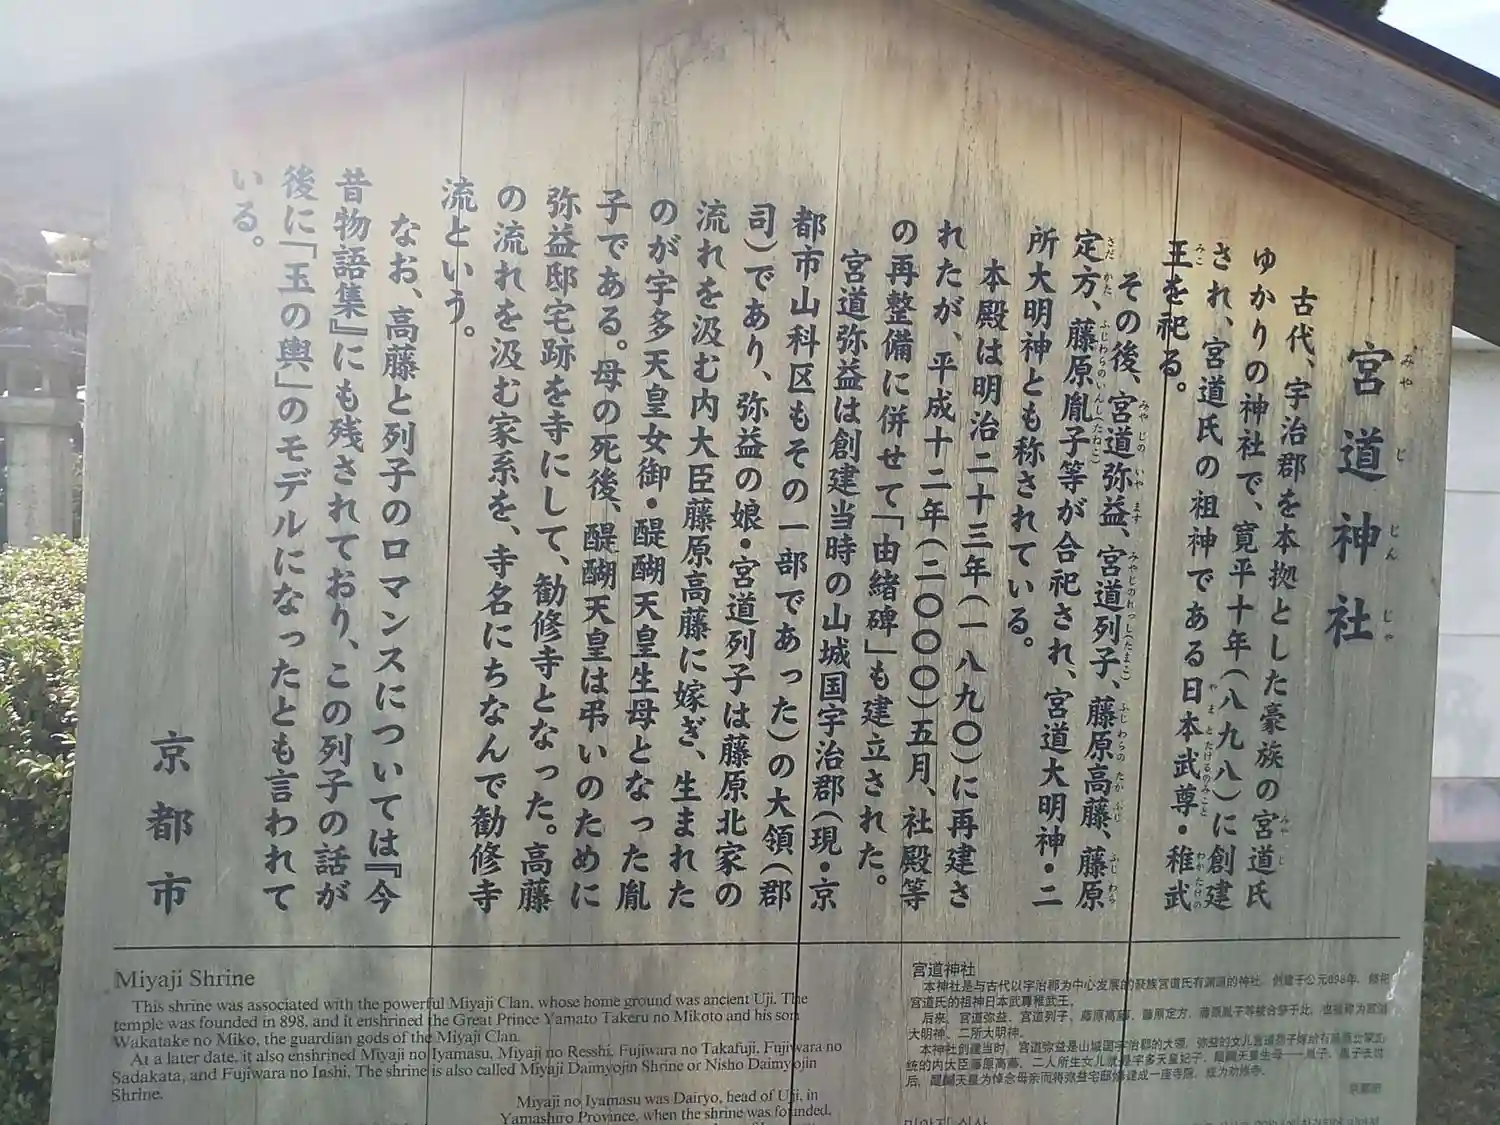 宮道神社
古代、宇治郡を本拠とした豪族の宮道氏
ゆかりの神社で、寛平十年(八九八)に創建
され、宮道氏の祖神である日本武尊・稚武
王を祀る。
その後、宮道弥益、宮道列子、藤原高藤、藤原
定方、藤原胤子等が合祀され、宮道大明神・二
所大明神とも称されている。
本殿は明治二十三年(一八九〇)に再建さ
れたが、平成十二年(二〇〇〇)五月、社殿等
の再整備に併せて「由緒碑」も建立された。
宮道弥益は創建当時の山城国宇治郡(現・京
都市山科区もその一部であった)の大領(郡
司)であり、弥益の娘・宮道列子は藤原北家の
流れを汲む内大臣藤原高藤に嫁ぎ、生まれた
のが宇多天皇女御・醍醐天皇生母となった胤
子である。母の死後、醍醐天皇は弔いのために
弥益邸宅跡を寺にして、勧修寺となった。高藤
の流れを汲む家系を、寺名にちなんで勧修寺
流という。
なお、高藤と列子のロマンスについては『今
昔物語集』にも残されており、この列子の話が
後に「玉の輿」のモデルになったとも言われて
いる。
京都市
Miyaji Shrine
This shrine was associated with the powerful Miyaji Clan, whose home ground was ancient Uji. The
temple was founded in 898, and it enshrined the Great Prince Yamato Takeru no Mikoto and his son
Wakatake no Miko, the guardian gods of the Miyaji Clan.
At a later date, it also enshrined Miyaji no Iyamasu, Miyaji no Resshi, Fujiwara no Takafuji, Fujiwara no
Sadakata, and Fujiwara no Inshi. The shrine is also called Miyaji Daimyojin Shrine or Nisho Daimyojin
Shrine.
Miyaji no Iyamasu was Dairyo, head of Uji, in
Yamashiro Province, when the shrine was founded.
宮道神社
本神社是与古代以宇治郡为中心发展的豪族宫道氏有渊源的神社，创建于公元898年，
宫道氏的祖神日本武尊稚武王。
后来，宫道弥益、宫道列子、藤原高藤、藤原定方、藤原胤子等被合祭于此，也被称为宫道
大明神、二所大明神。
本神社创建当时，宫道弥益是山城国宇治郡的大领，弥益的女儿宫道列子嫁给
统的内大臣藤原高藤，二人所生女儿就是宇多天皇妃子、醍醐天皇生母——胤子。胤子去世
后，醍醐天皇为悼念母亲而将弥益宅邸修建成一座寺院，成为劝修寺。